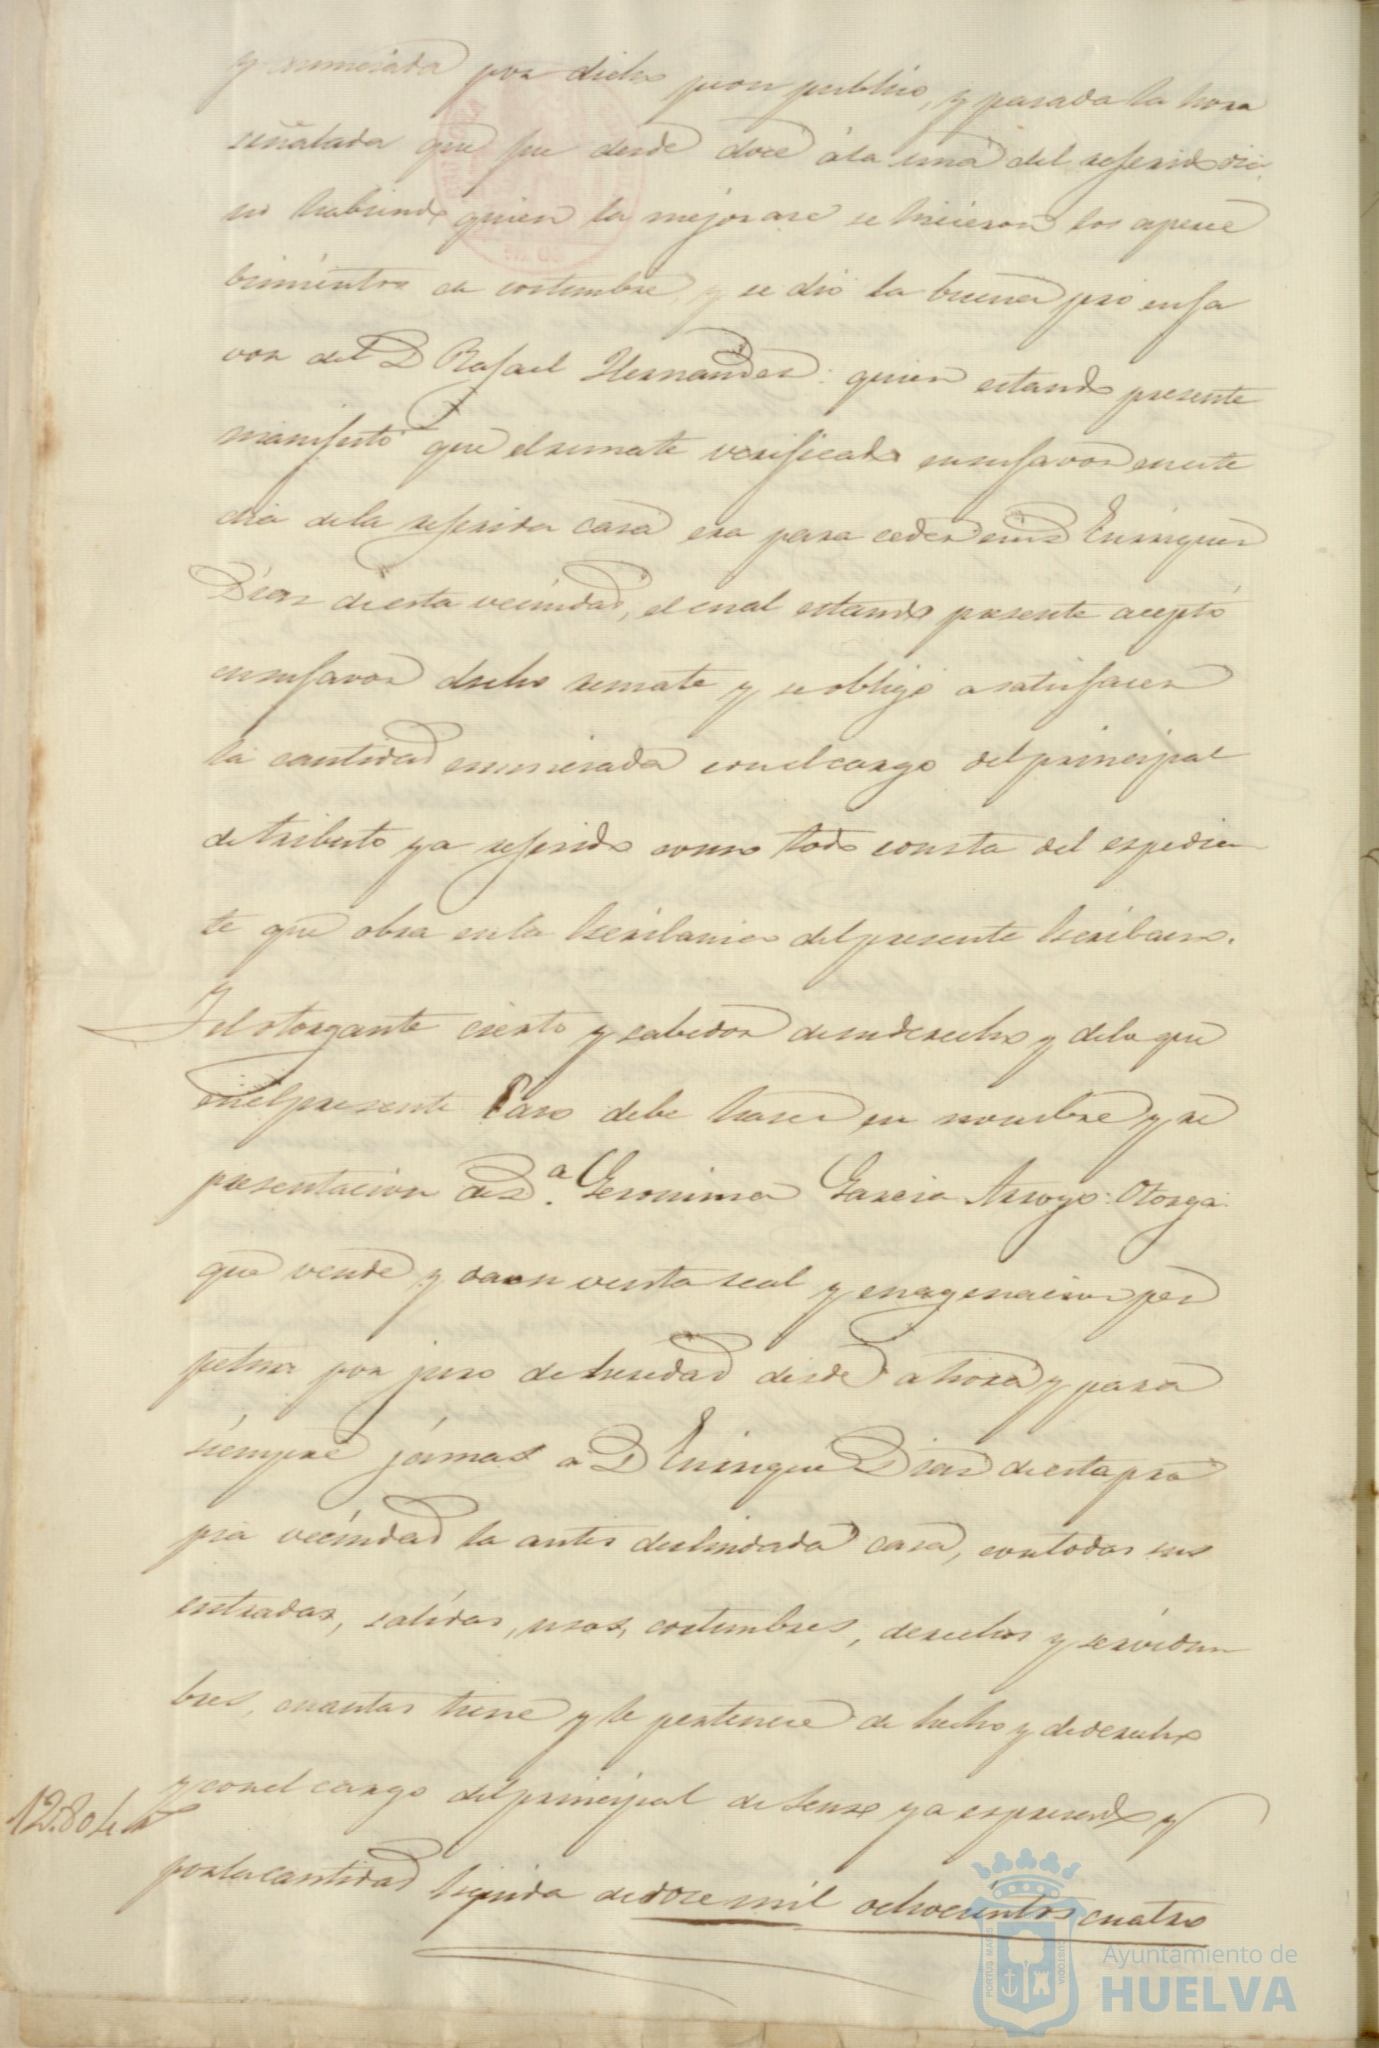 y enunciada por dicho peon publico, y pasada la hora
señalada que fue desde doce á la una del referido dia
no habiendo quien la mejorare se hicieron los aperci
bimientos de costumbre y se dió la buena pro en fa
vor del D Rafael Hernandez: quien estando presente
manifestó que el remate verificado en su favor en este
dia de la referida casa era para ceder en D Enrique
Diaz de esta vecindad, el cual estando presente aceptó
en su favor dicho remate y se obligó a satisfacer
la cantidad enunciada con el cargo del principal
de tributo ya referido como todo consta del espedien
te que obra en la Escribania del presente Escribano.
Y el otorgante cierto y sabedor de su derecho y de lo que
en el presente Caso debe hacer en nombre y re
presentacion de D.ª Geronima Garcia Arroyo: Otorga:
que vende y da en venta real y enagenacion per
petua por juro de heredad desde ahora y para
siempre jámas a D Enrique Diaz de esta pro
pia vecindad la antes deslindada casa, con todas sus
entradas, salidas, usos, costumbres, derechos y servidum
bres, cuantas tiene y le pertenece de hecho y de derecho
y con el cargo del principal de Censo ya espresado y
12.804
por la cantidad liquida de doce mil ochocientos cuatro
PORTUS MARIS
CUSTODIA
Ayuntamiento de
HUELVA